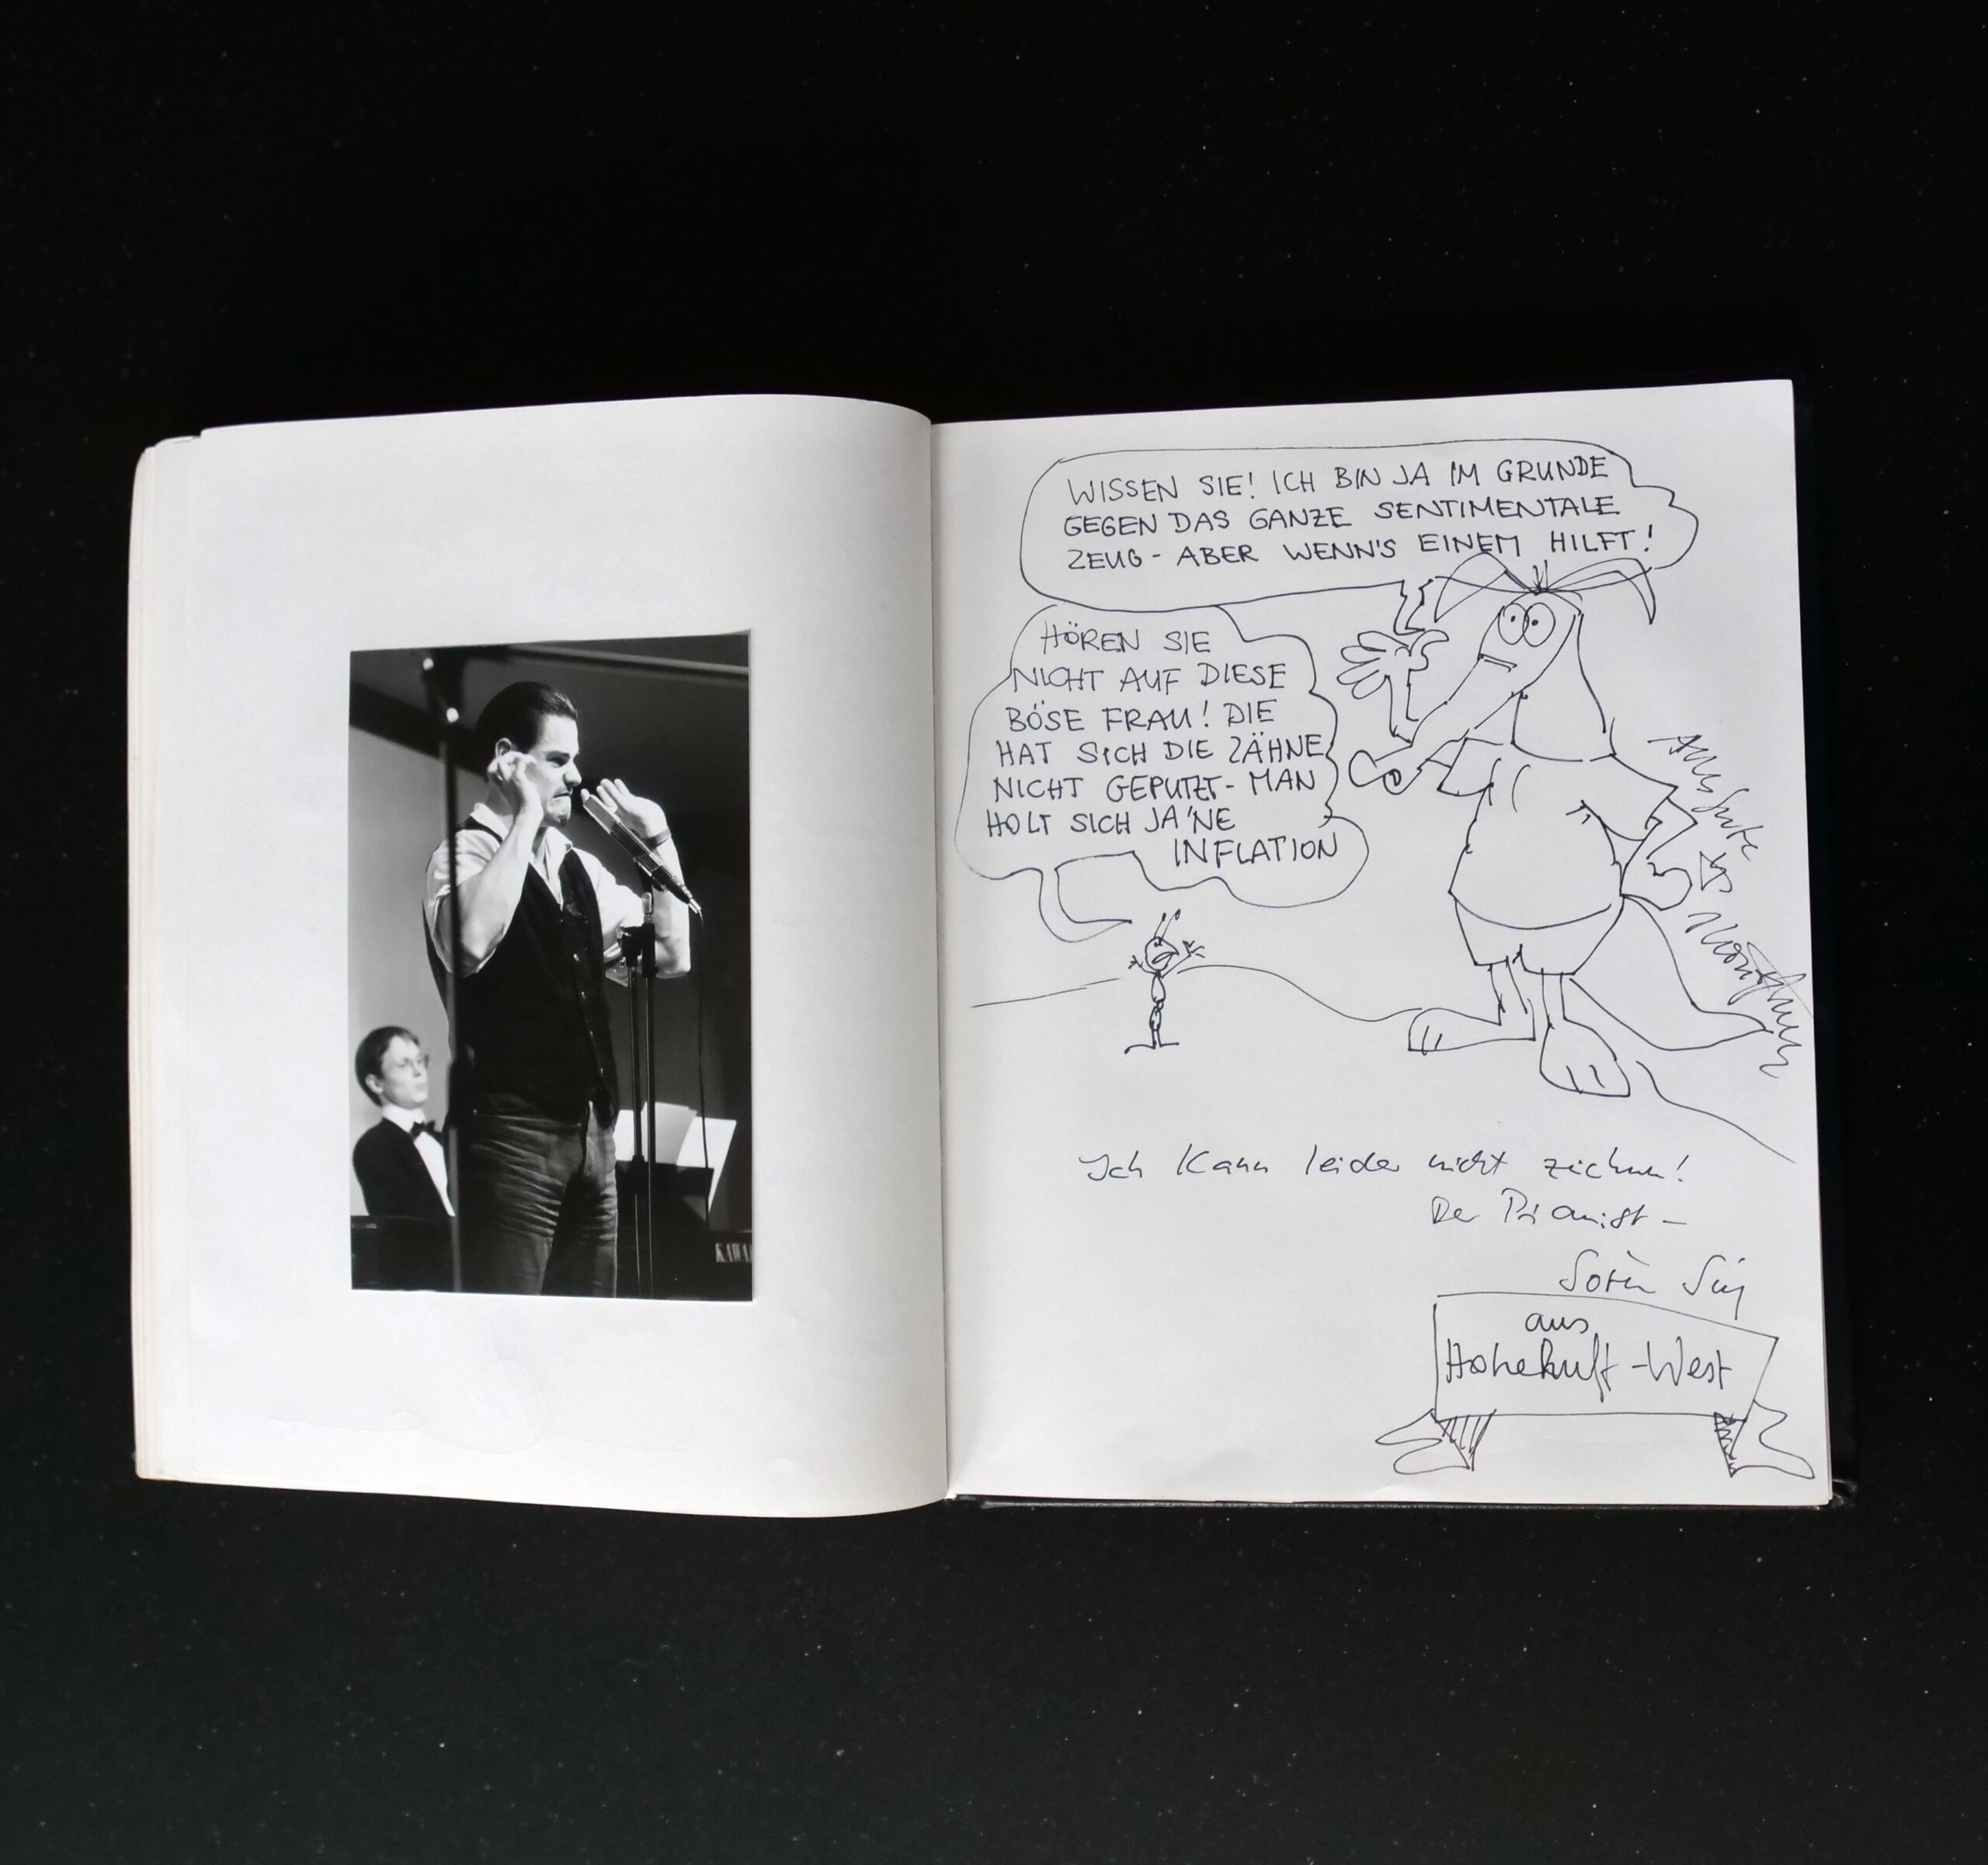 WISSEN SIE! ICH BIN JA IM GRUNDE
GEGEN DAS GANZE SENTIMENTALE
ZEUG - ABER WENN'S EINEM HILFT!
HÖREN SIE
NICHT AUF DIESE
BÖSE FRAU! DIE
HAT SICH DIE ZÄHNE
NICHT GEPUTZT - MAN
HOLT SICH JA 'NE
INFLATION
Alles Gute
Ich kann leider nicht zeichnen!
Der Pianist -
aus
Hohekuft-West
KAWAI